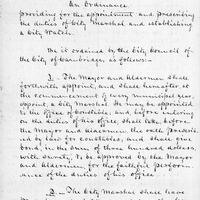 An Ordinance
providing for the appointment and prescribing
the duties of City Marshal and establishing
a City Watch.
Be it ordained by the City Council of
the City of Cambridge, as follows:-
1. - The Mayor and Aldermen shall
forthwith appoint, and shall hereafter at
the commencement of every municipal year
appoint a City Marshal. He may be appointed
to the office of Constable, and before entering
on the duties of his office, shall take, before
the Mayor and Aldermen the oath prescri-
bed by law for constables, and shall give
bond, in the sum of three hundred dollars,
with surety, to be approved by the Mayor
and Aldermen for the faithful perform-
ance of the duties of his office.
2. - The City Marshal shall have